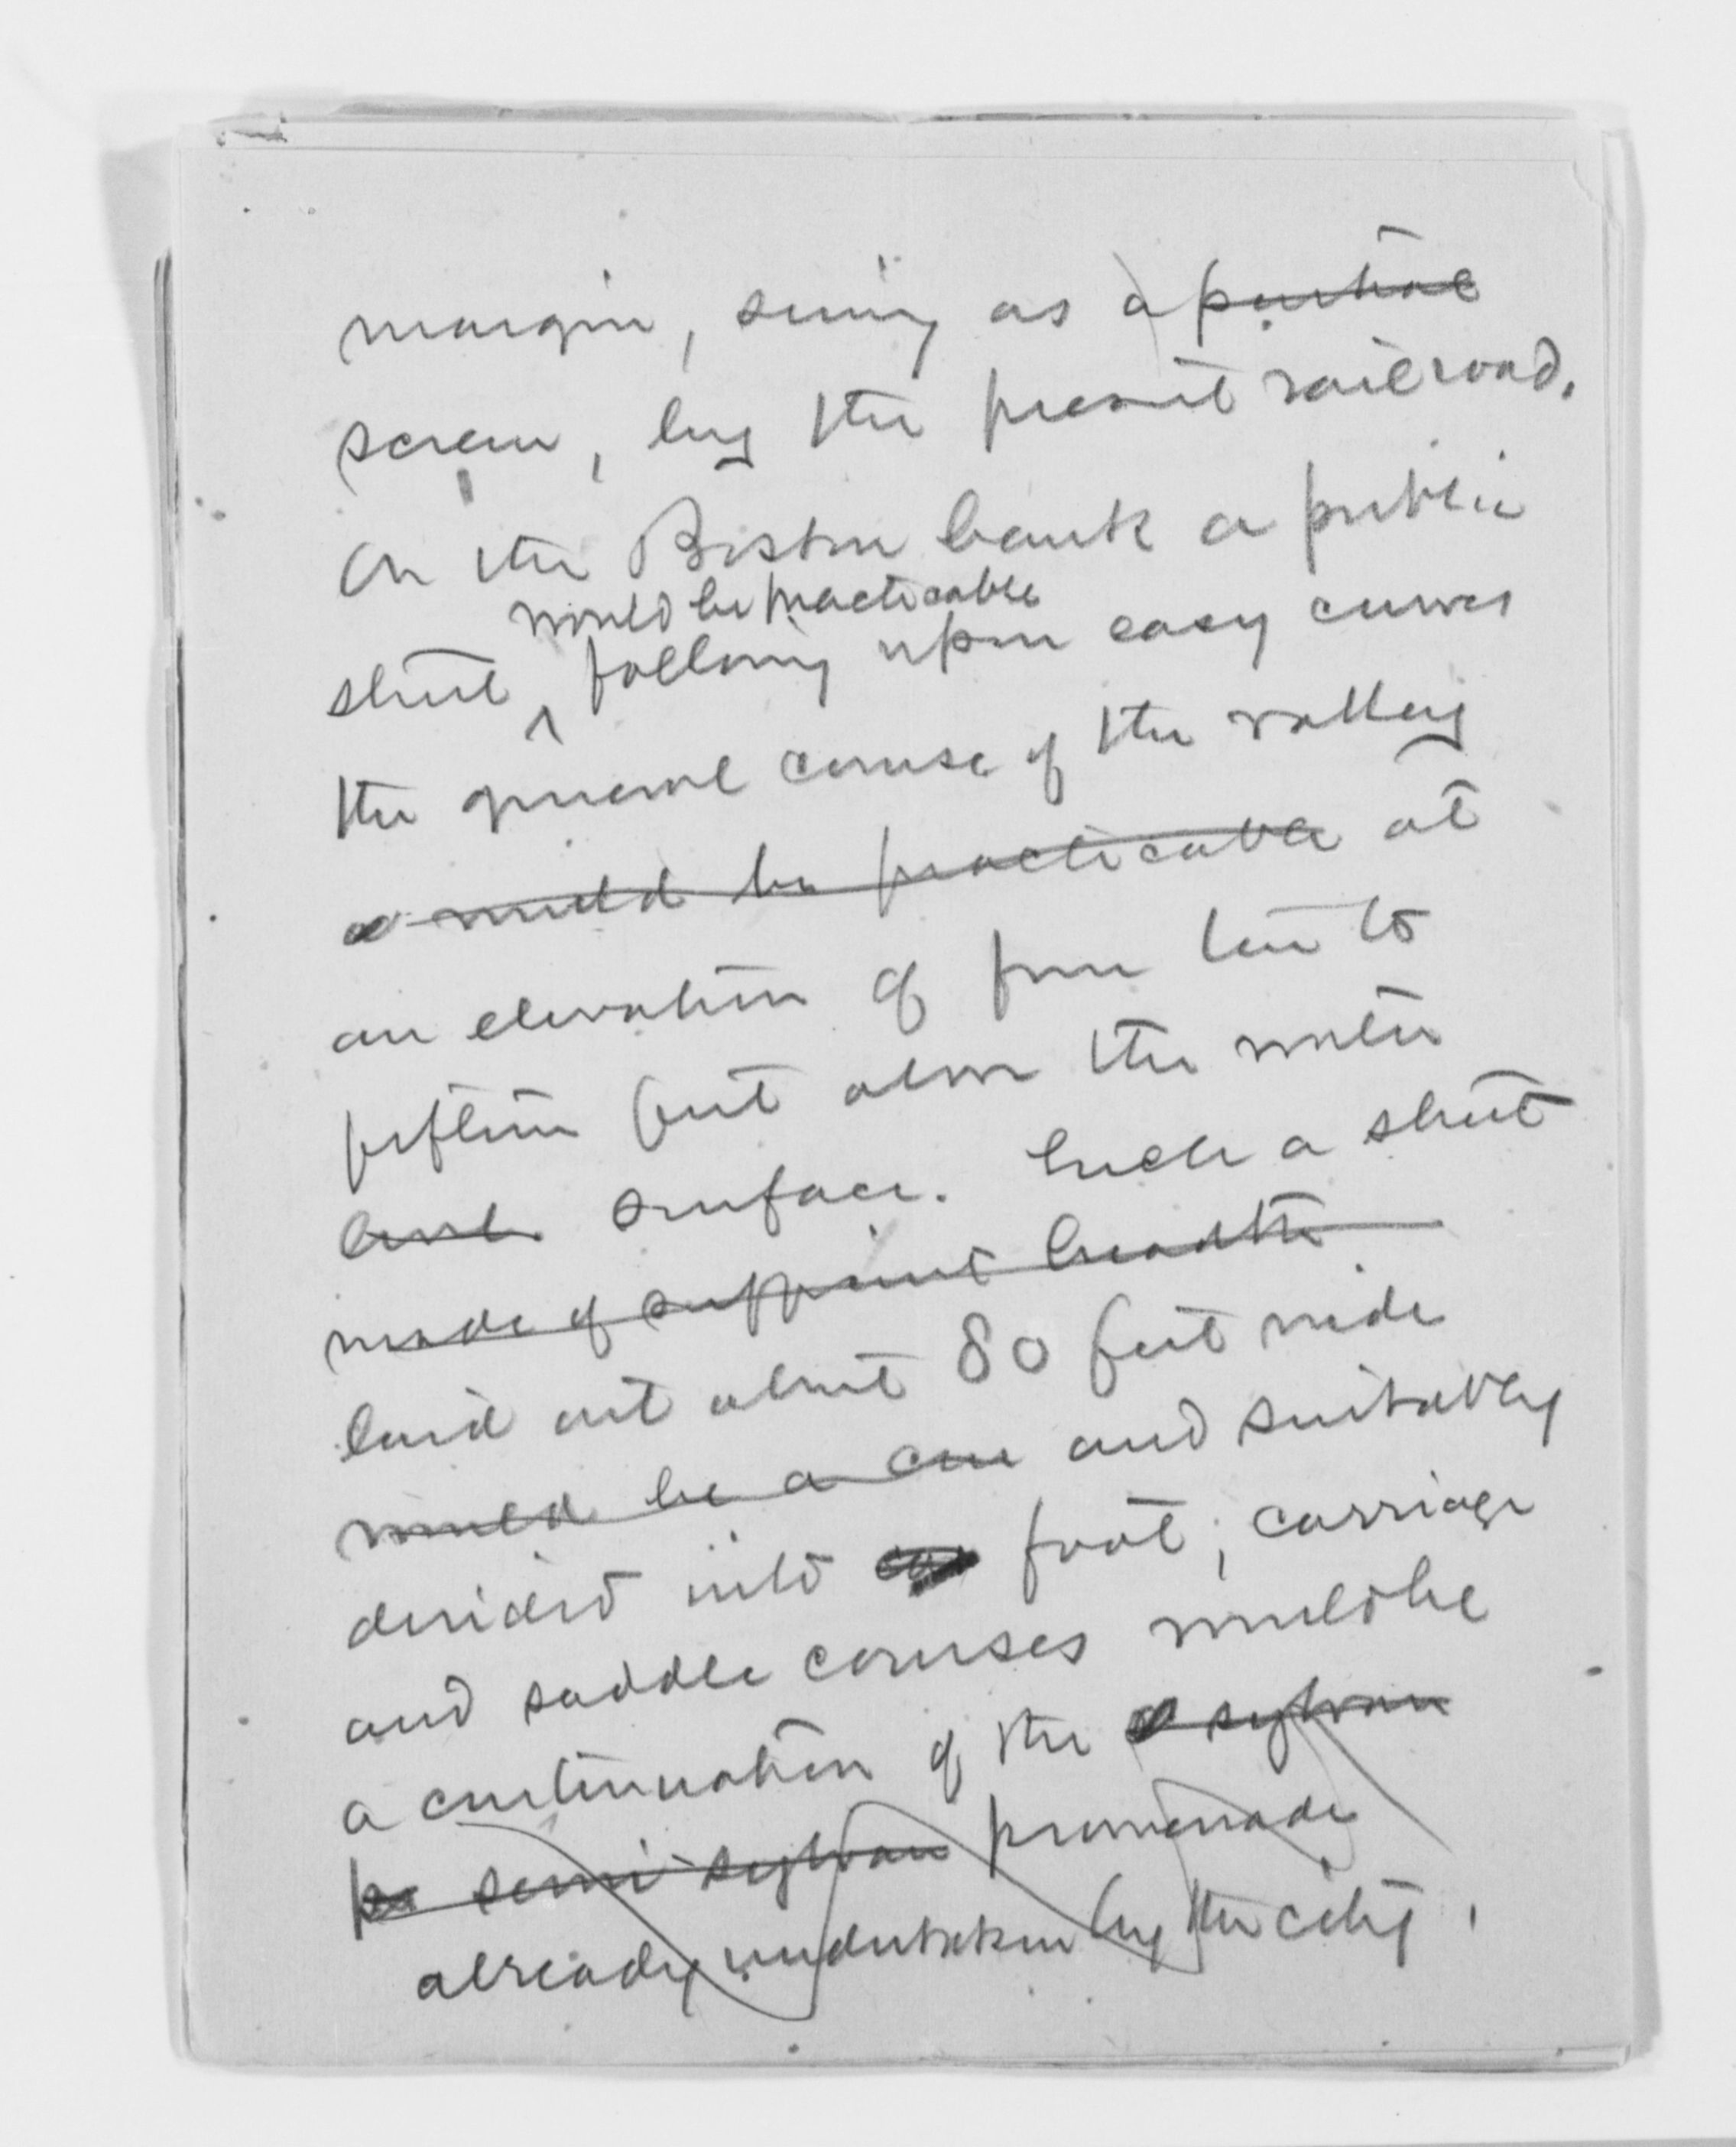 margin, serving as a partial
screen, by the present railroad.
On the Boston bank a public
would be practicable
street ^ following upon easy curves
the general course of the valley
a would be practicable at
an elevation of from ten to
fifteen feet above the water
level surface. Such a street
made of sufficient breadth
laid out about 80 feet wide
would be a con and suitably
divided into foot, carriage
and saddle courses would be
a continuation of the a sylvan
semi-sylvan promenade
already undertaken by the city.